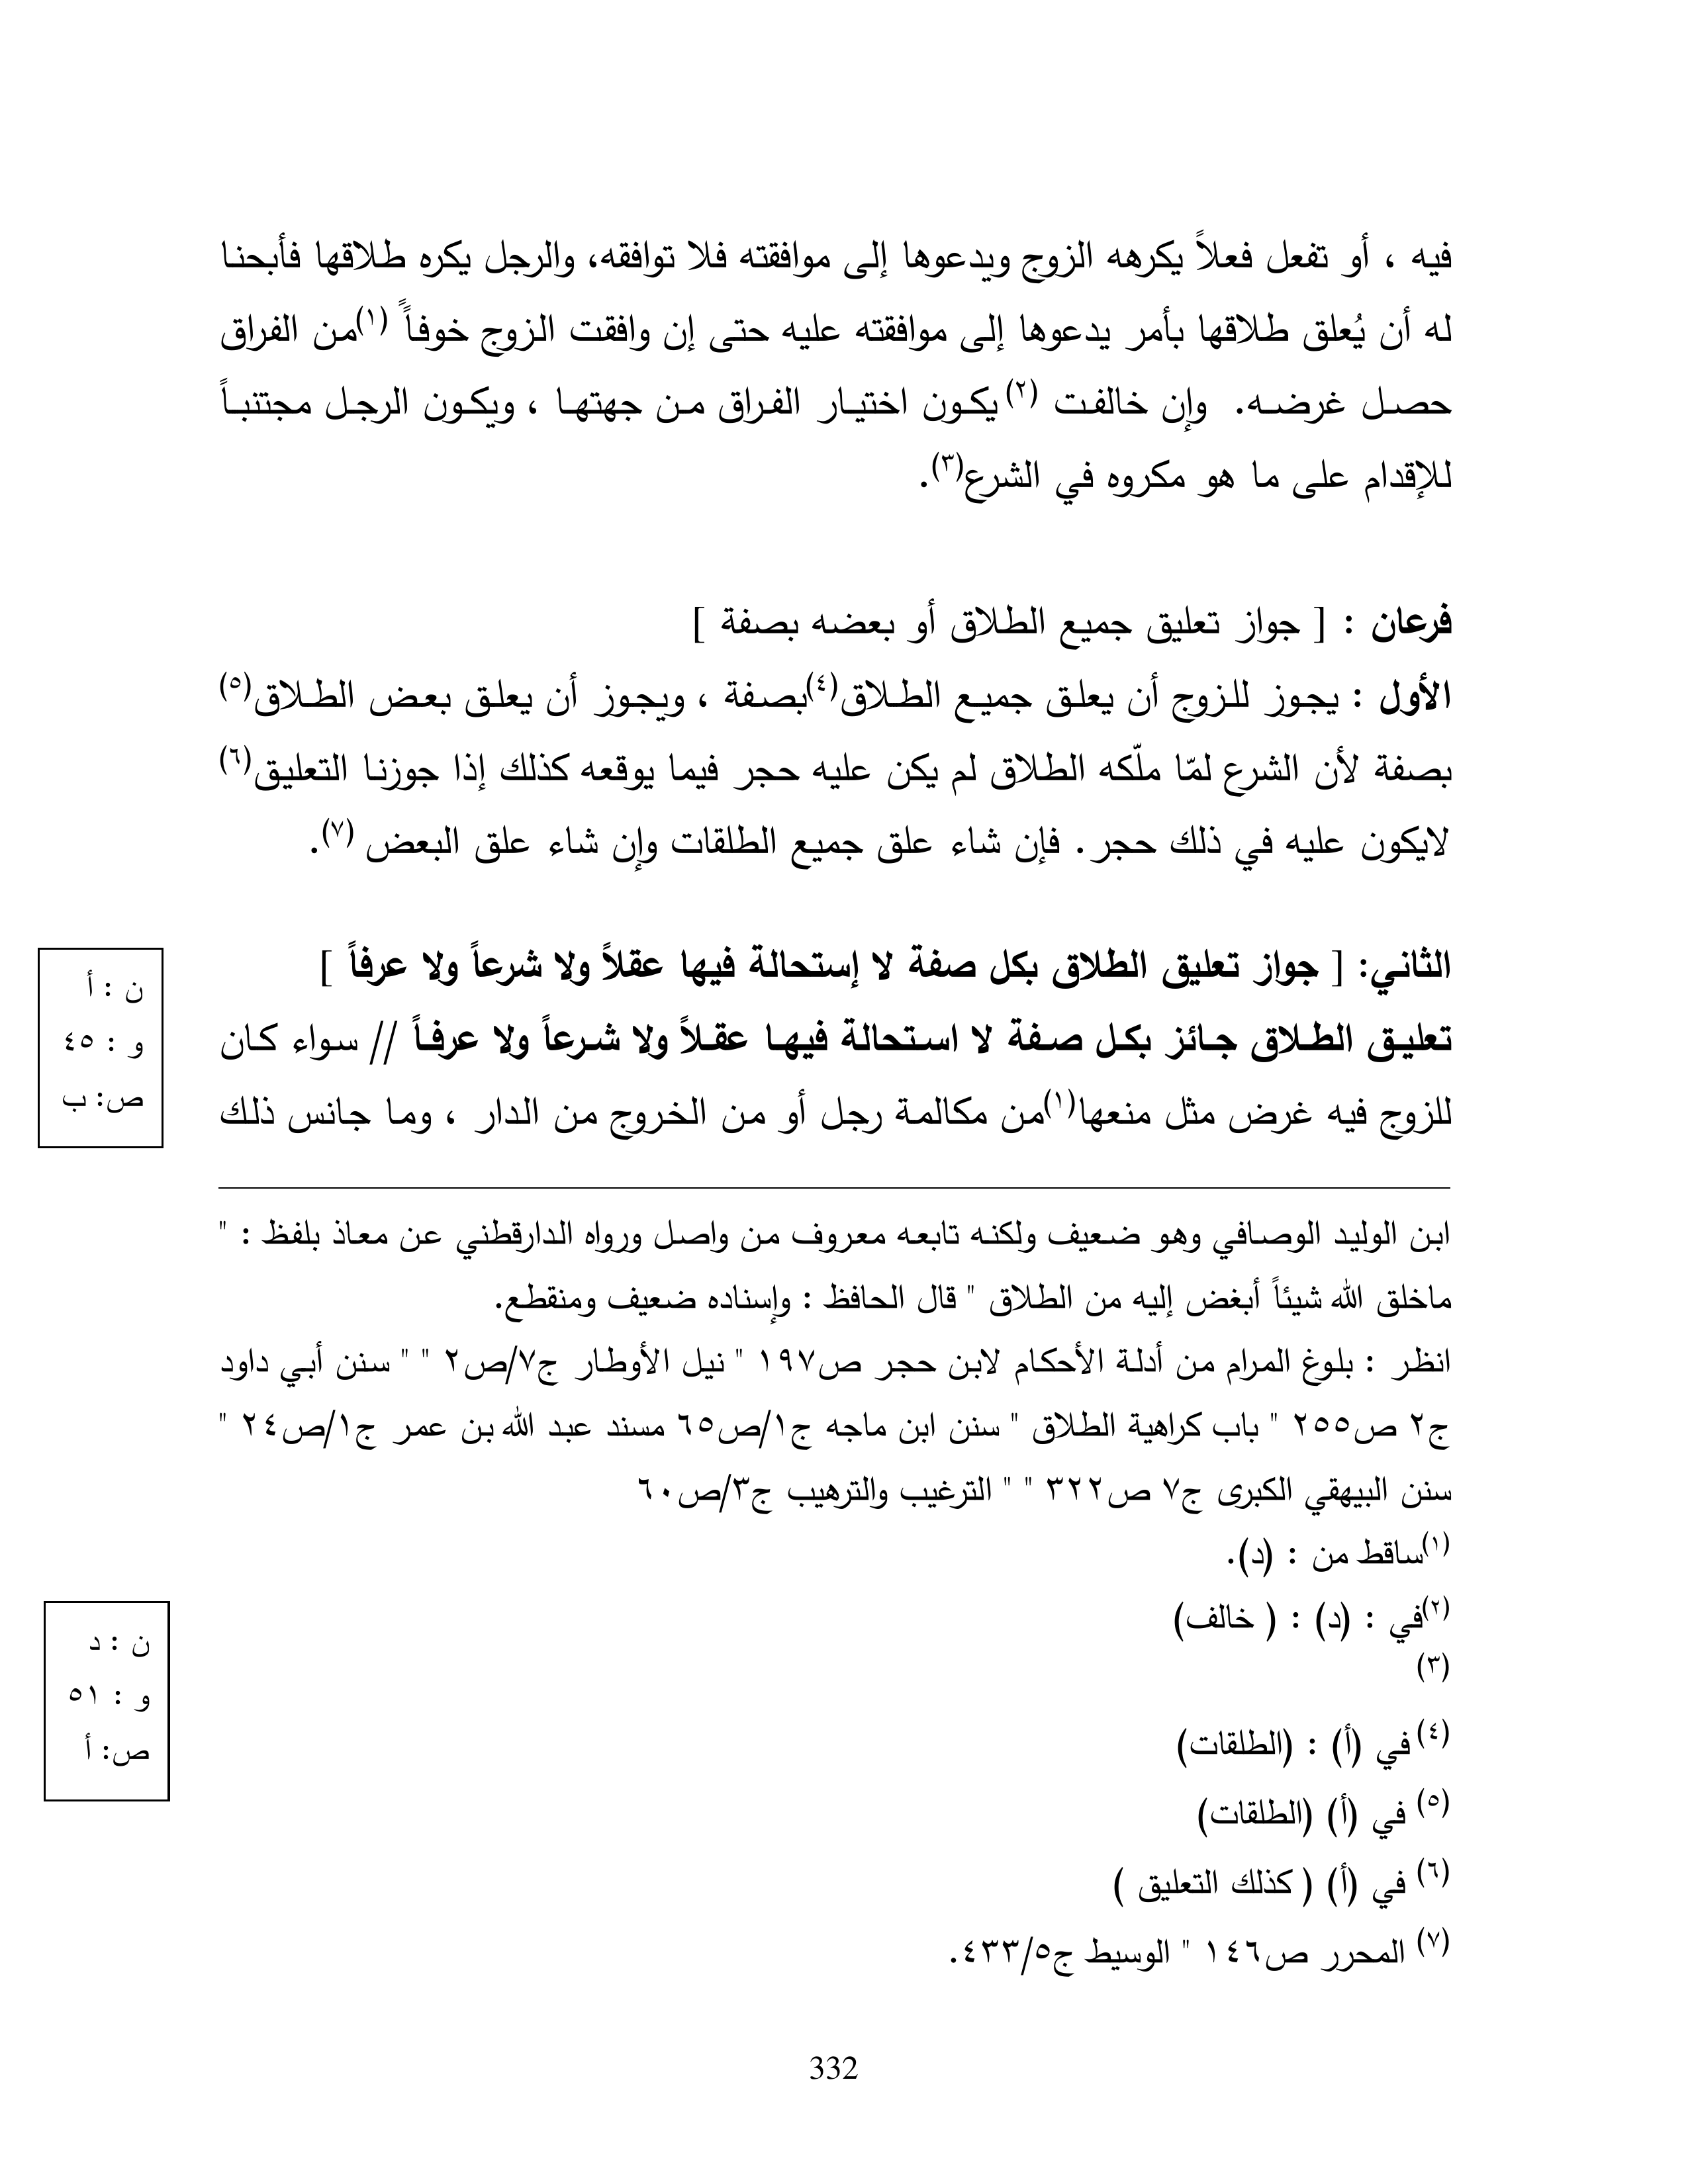 فيه ، أو تفعل فعلاً يكرهه الزوج ويدعوها إلى موافقته فلا توافقه، والرجل يكره طلاقها فأبحنا
له أن يُعلق طلاقها بأمر يدعوها إلى موافقته عليه حتى إن وافقت الزوج خوفاً (١)من الفراق
حصل غرضه. وإن خالفت (٢)يكون اختيار الفراق من جهتها ، ويكون الرجل مجتنباً
للإقدام على ما هو مكروه في الشرع(٣).
فرعان : [ جواز تعليق جميع الطلاق أو بعضه بصفة ]
الأول : يجوز للزوج أن يعلق جميع الطلاق(٤)بصفة ، ويجوز أن يعلق بعض الطلاق(٥)
بصفة لأن الشرع لمّا ملّكه الطلاق لم يكن عليه حجر فيما يوقعه كذلك إذا جوزنا التعليق(٦)
لايكون عليه في ذلك حجر. فإن شاء علق جميع الطلقات وإن شاء علق البعض (٧).
الثاني: [ جواز تعليق الطلاق بكل صفة لا إستحالة فيها عقلاً ولا شرعاً ولا عرفاً ]
ن : أ
و : ٤٥
ص: ب
تعليق الطلاق جائز بكل صفة لا استحالة فيها عقلاً ولا شرعاً ولا عرفاً // سواء كان
للزوج فيه غرض مثل منعها(١)من مكالمة رجل أو من الخروج من الدار ، وما جانس ذلك
ابن الوليد الوصافي وهو ضعيف ولكنه تابعه معروف من واصل ورواه الدارقطني عن معاذ بلفظ : "
ماخلق الله شيئاً أبغض إليه من الطلاق " قال الحافظ : وإسناده ضعيف ومنقطع.
انظر : بلوغ المرام من أدلة الأحكام لابن حجر ص١٩٧ " نيل الأوطار ج٧/ص٢ " " سنن أبي داود
ج٢ ص٢٥٥ " باب كراهية الطلاق " سنن ابن ماجه ج١/ص٦٥ مسند عبد الله بن عمر ج١/ص٢٤ "
سنن البيهقي الكبرى ج٧ ص٣٢٢ " " الترغيب والترهيب ج٣/ص٦٠
(١)ساقط من : (د).
(٢)في : (د) : ( خالف)
(٣)
(٤) في (أ) : (الطلقات)
(٥) في (أ) (الطلقات)
(٦) في (أ) ( كذلك التعليق )
(٧) المحرر ص١٤٦ " الوسيط ج٤٣٣/٥.
ن : د
و : ٥١
ص: أ
332